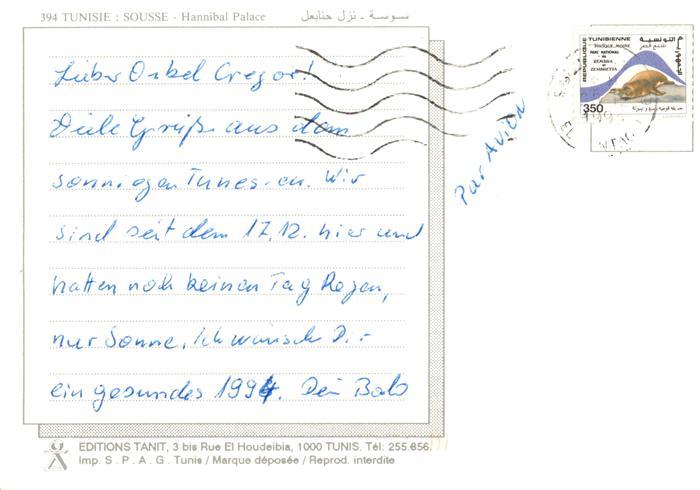 394 TUNISIE : SOUSSE - Hannibal Palace
سوسة ـ نزل حنابعل
Lieber Onkel Gregor!
Viele Grüße aus dem
sonnigen Tunesien. Wir
sind seit dem 17.12. hier und
hatten noch keinen Tag Regen,
nur Sonne. Ich wünsche Dir
ein gesundes 1994. Dein
Par AVION
REPUBLIQUE TUNISIENNE
PHOQUE MOINE
PARC NATIONAL
de
ZEMBRA
et
ZEMBRETTA
350
EDITIONS TANIT, 3 bis Rue El Houdeibia, 1000 TUNIS. Tél: 255.656
Imp. S. P. A. G. Tunis / Marque déposée / Reprod. interdite